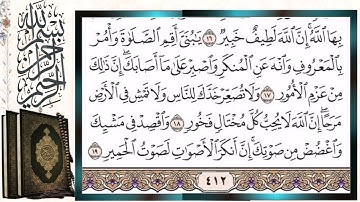 بسم الله الرحمن الرحيم
بِهَا ٱللَّهُۚ إِنَّ ٱللَّهَ لَطِيفٌ خَبِيرٌ ١٦ يَٰبُنَيَّ أَقِمِ ٱلصَّلَوٰةَ وَأۡمُرۡ
بِٱلۡمَعۡرُوفِ وَٱنۡهَ عَنِ ٱلۡمُنكَرِ وَٱصۡبِرۡ عَلَىٰ مَآ أَصَابَكَۖ إِنَّ ذَٰلِكَ
مِنۡ عَزۡمِ ٱلۡأُمُورِ ١٧ وَلَا تُصَعِّرۡ خَدَّكَ لِلنَّاسِ وَلَا تَمۡشِ فِي ٱلۡأَرۡضِ
مَرَحًاۖ إِنَّ ٱللَّهَ لَا يُحِبُّ كُلَّ مُخۡتَالٖ فَخُورٖ ١٨ وَٱقۡصِدۡ فِي مَشۡيِكَ
وَٱغۡضُضۡ مِن صَوۡتِكَۚ إِنَّ أَنكَرَ ٱلۡأَصۡوَٰتِ لَصَوۡتُ ٱلۡحَمِيرِ ١٩
٤١٢